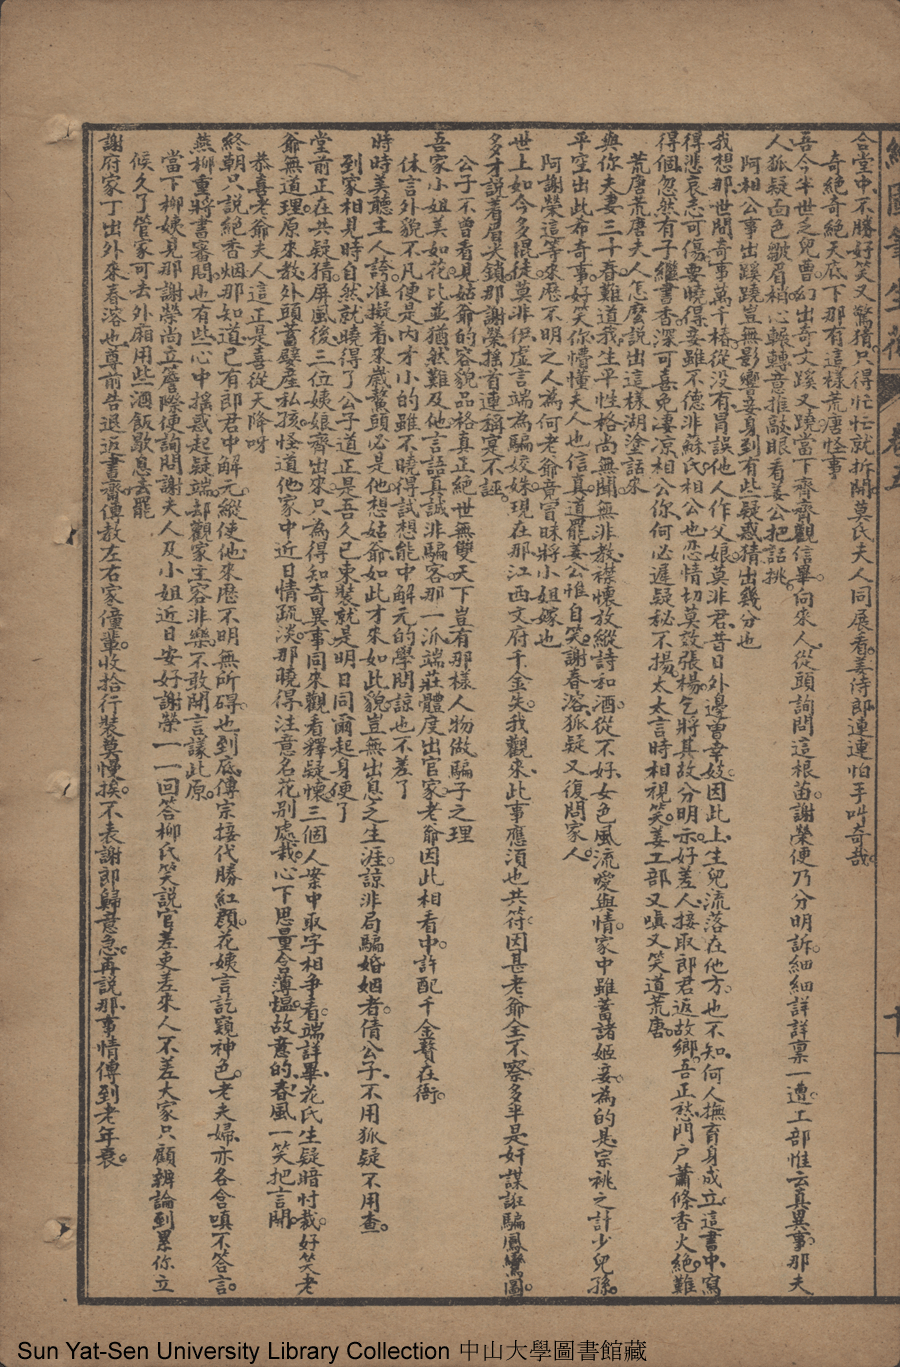 合堂中不勝好笑又驚猜只得忙忙就拆開莫氏夫人同展看姜侍郎連連怕手叫奇哉
奇絕奇絕天底下那有這樣荒唐怪事
吾今半世之兒曹幻出奇文蹊又蹺當下齊齊觀信畢向來人從頭詢問這根苗謝榮便乃分明訴細細詳詳稟一遭工部惟云真異事那夫
人狐疑面色皺眉稍心轆轉意推敲眼看姜公把話挑
阿相公事出蹊蹺豈無影響妾身到有些疑惑猜出幾分也
我想那世間奇事萬千樁從没有冒誤他人作父娘莫非君昔日外邊曾幸妓因此上生兒流落在他方也不知何人撫育身成立這書中寫
得悲哀志可傷要曉得妾雖不德非蘇氏相公也恐情切莫效張楊乞將其故分明示好差人接取郎君返故鄉吾正愁門户蕭條香火絕難
得個忽然有子繼書香深可喜免凄凉相公你何必遲疑秘不揚太太言時相視笑姜工部又嗔又笑道荒唐
荒唐荒唐夫人怎麽說出這樣湖塗話來
與你夫妻三十春難道我生平性格尚無聞無非教襟懷放縱詩和酒從不好女色風流愛與情家中雖蓄諸姬妾為的是宗祧之計少兒孫
平空出此希奇事好笑你懵懂夫人也信真道罷姜公惟自笑謝春溶狐疑又復問家人
阿謝榮這等來歷不明之人為何老爺竟冒昧將小姐嫁也
世上如今多混徒莫非供虛言端為騙姣姝現在那江西文府千金失我觀來此事應須也共符因甚老爺全不察多半是奸謀誑騙鳳鸞圖
多才説着眉尖鎖那謝榮摇首連稱寔不誣
公子不曾看見姑爺的容貌品格真正絕世無雙天下豈有那樣人物做騙子之理
吾家小姐美如花比並猶然難及他言語真誠非騙客那一派端莊體度出官家老爺因此相看中許配千金贅在衙
休言外貌不凡便是内才小的雖不曉得試想能中解元的學問諒也不差了
時時美聽主人誇准擬着來歲鰲頭必是他想姑爺如此才來如此貌豈無出息之生涯諒非局騙婚姻者倩公子不用狐疑不用查
到家相見時自然就曉得了公子道正是吾久已束裝就是明日同爾起身便了
堂前正在共疑猜屏風後三位姨娘齊出來只為得知奇異事同來觀看釋疑懷三個人案中取字相爭看端詳畢花氏生疑暗忖裁好笑老
爺無道理原來教外頭蓄孽産私孩怪道他家中近日情疏淡那曉得注意名花别處栽心下思量含薄愠故意的春風一笑把言開
恭喜老爺夫人這正是喜從天降呀
終朝只説絕香烟那知道已有郎君中解元縱使他來歷不明無所碍也到底傳宗接代勝紅顔花姨言訖窺神色老夫婦亦各含嗔不答言
燕柳重將書審閱也有些心中摇惑起疑端却觀家主容非樂不敢開言議此原
當下柳姨見那謝榮尚立簷際便詢問謝夫人及小姐近日安好謝榮一一回答柳氏笑説官差吏差來人不差大家只顧辨論到累你立
候久了管家可去外廂用些酒飯歇息去罷
謝府家丁出外來春溶也尊前告退返書齋便教左右家僮輩收拾行裝莫慢挨不表謝郎歸意急再説那事情傳到老年衰
Sun Yat-Sen University Library Collection 中山大學圖書館藏